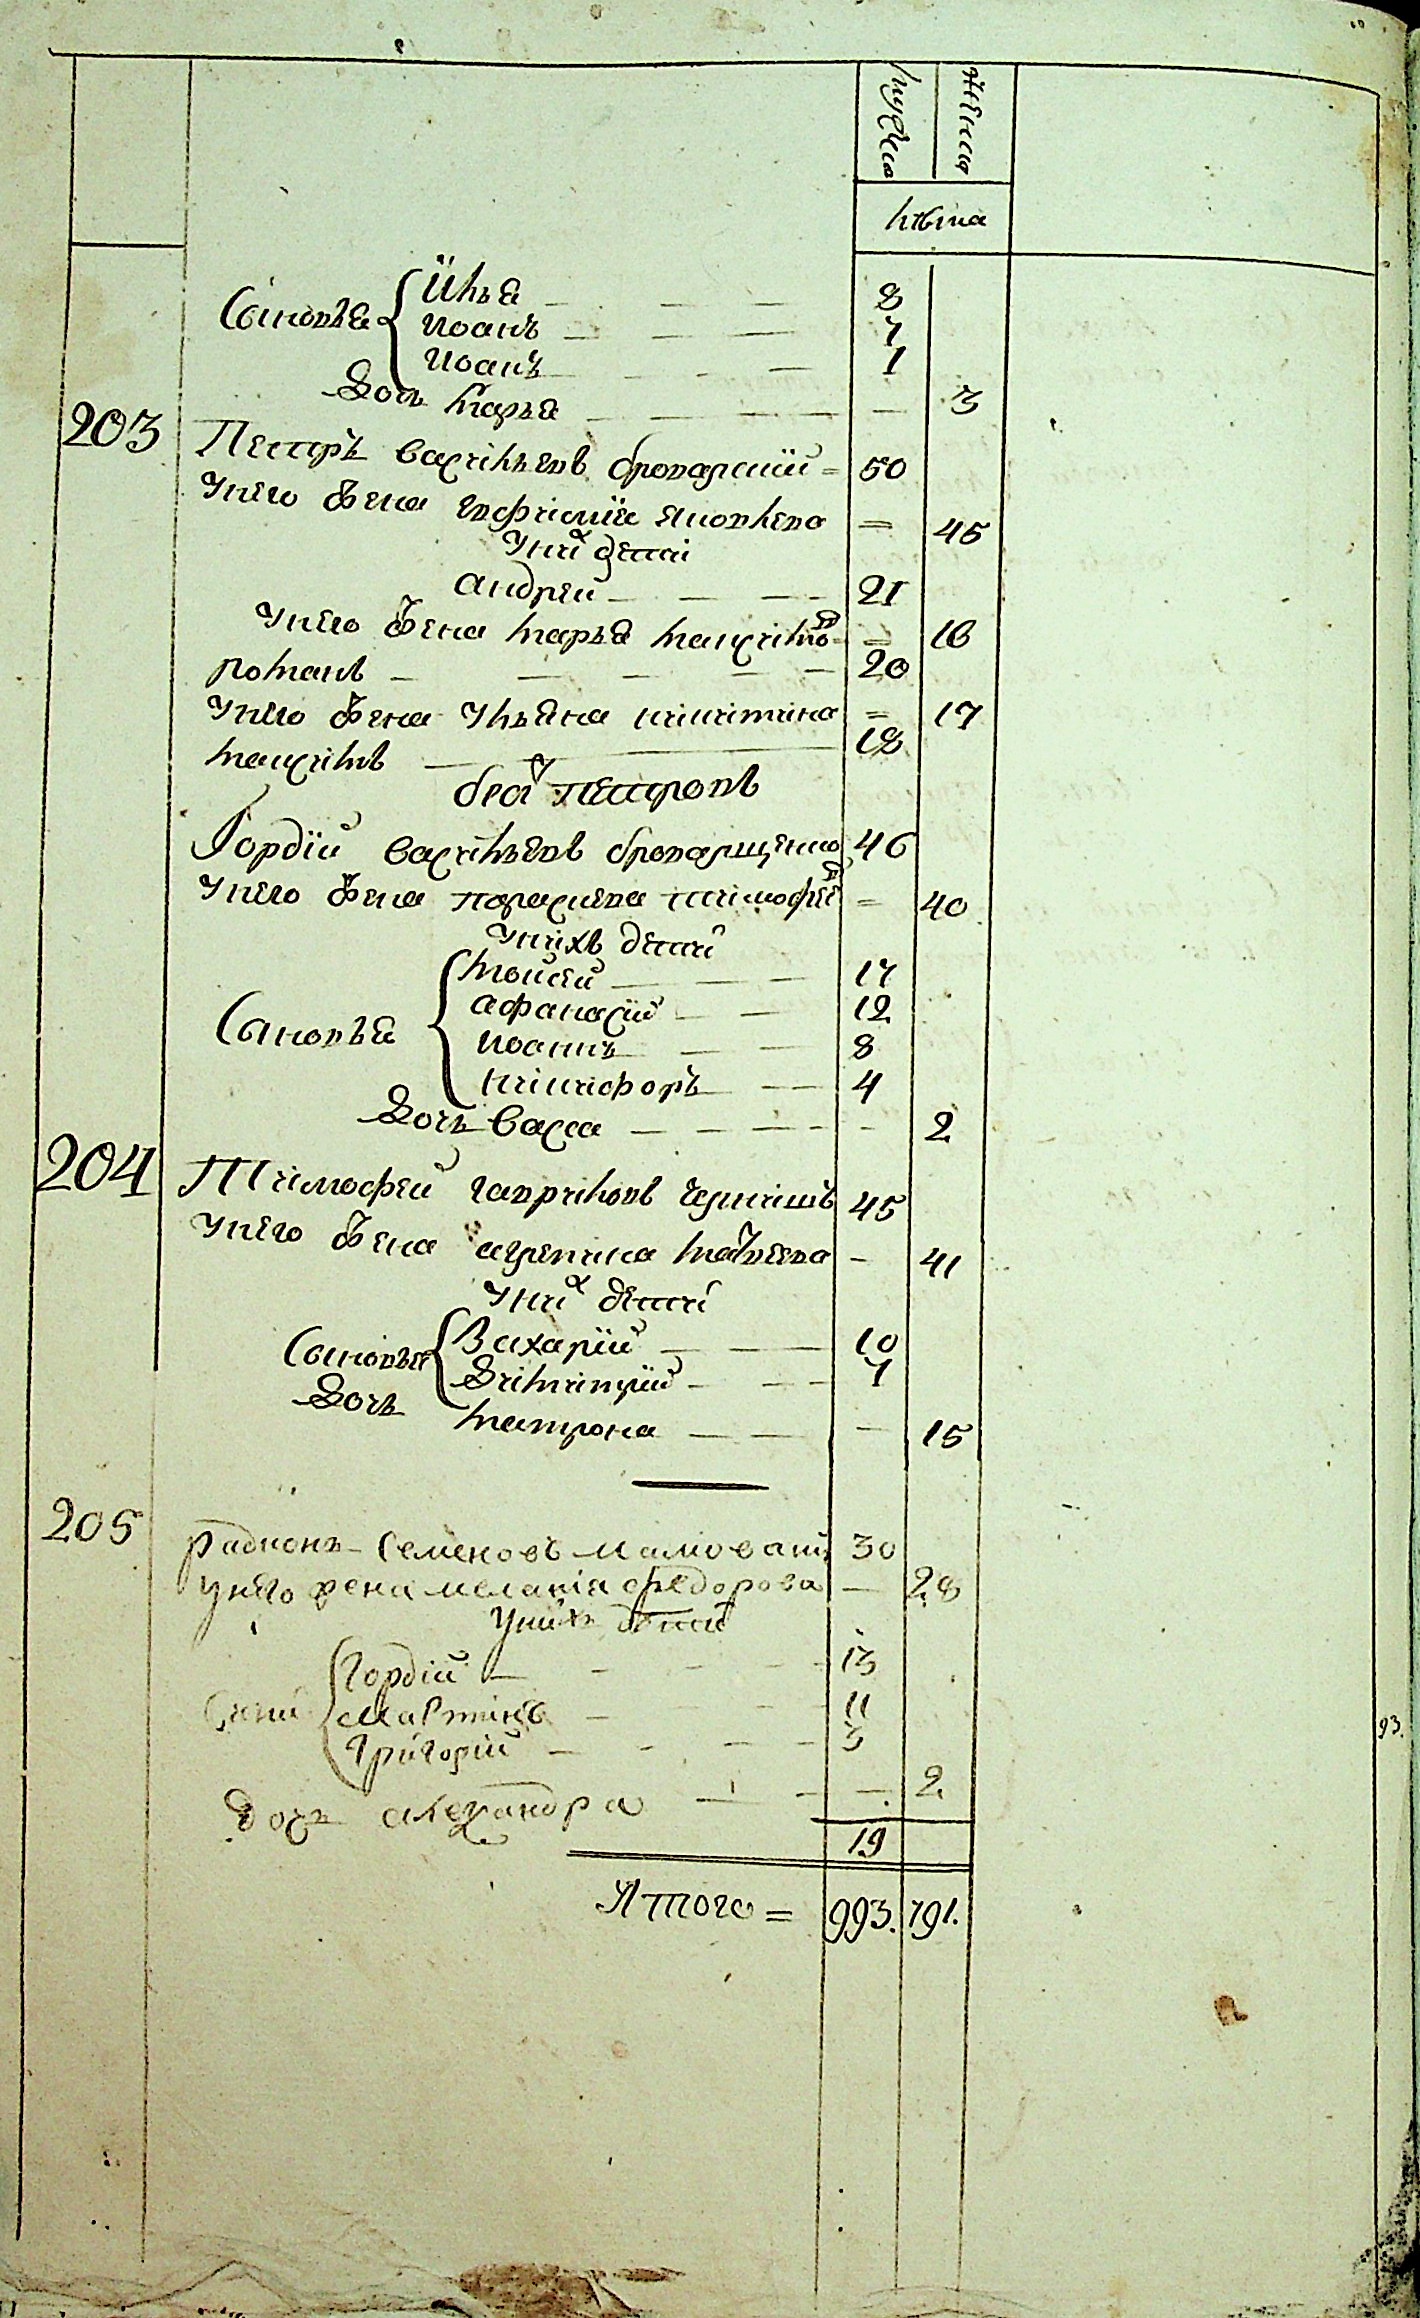 мужеска женска
лѣта
Сыновья Илья 8
Иоанъ 7
Иоанъ 1
Дочь Марья 3
203 Петръ Васильевъ броварский 50
у него жена Евфимия Яковлева 45
у них дети
Андрей 21
у него жена Марья Максимова 18
Романъ 20
у него жена Ульяна Никитина 17
Максимъ 18
брат Петровъ
Гордий Васильевъ броварщенко 46
у него жена Параскева Тимофеева 40
у нихъ дети
Сыновья Моисей 17
Афанасий 12
Иоаннъ 8
Никифоръ 4
Дочь Васса 2
204 Тимофей Гавриловъ 45
у него жена Агрепина Матвеева 41
у них дети
Сыновья Захарий 10
Димитрий 7
Дочь Матрона 15
205 Радионъ Семеновъ 30
у него жена Мелания Федорова 28
у нихъ дети
Сыни Гордій 13
Мартинъ 11
Григорій 3
дочь Александра 2
19
Итого = 993. 791.
93.